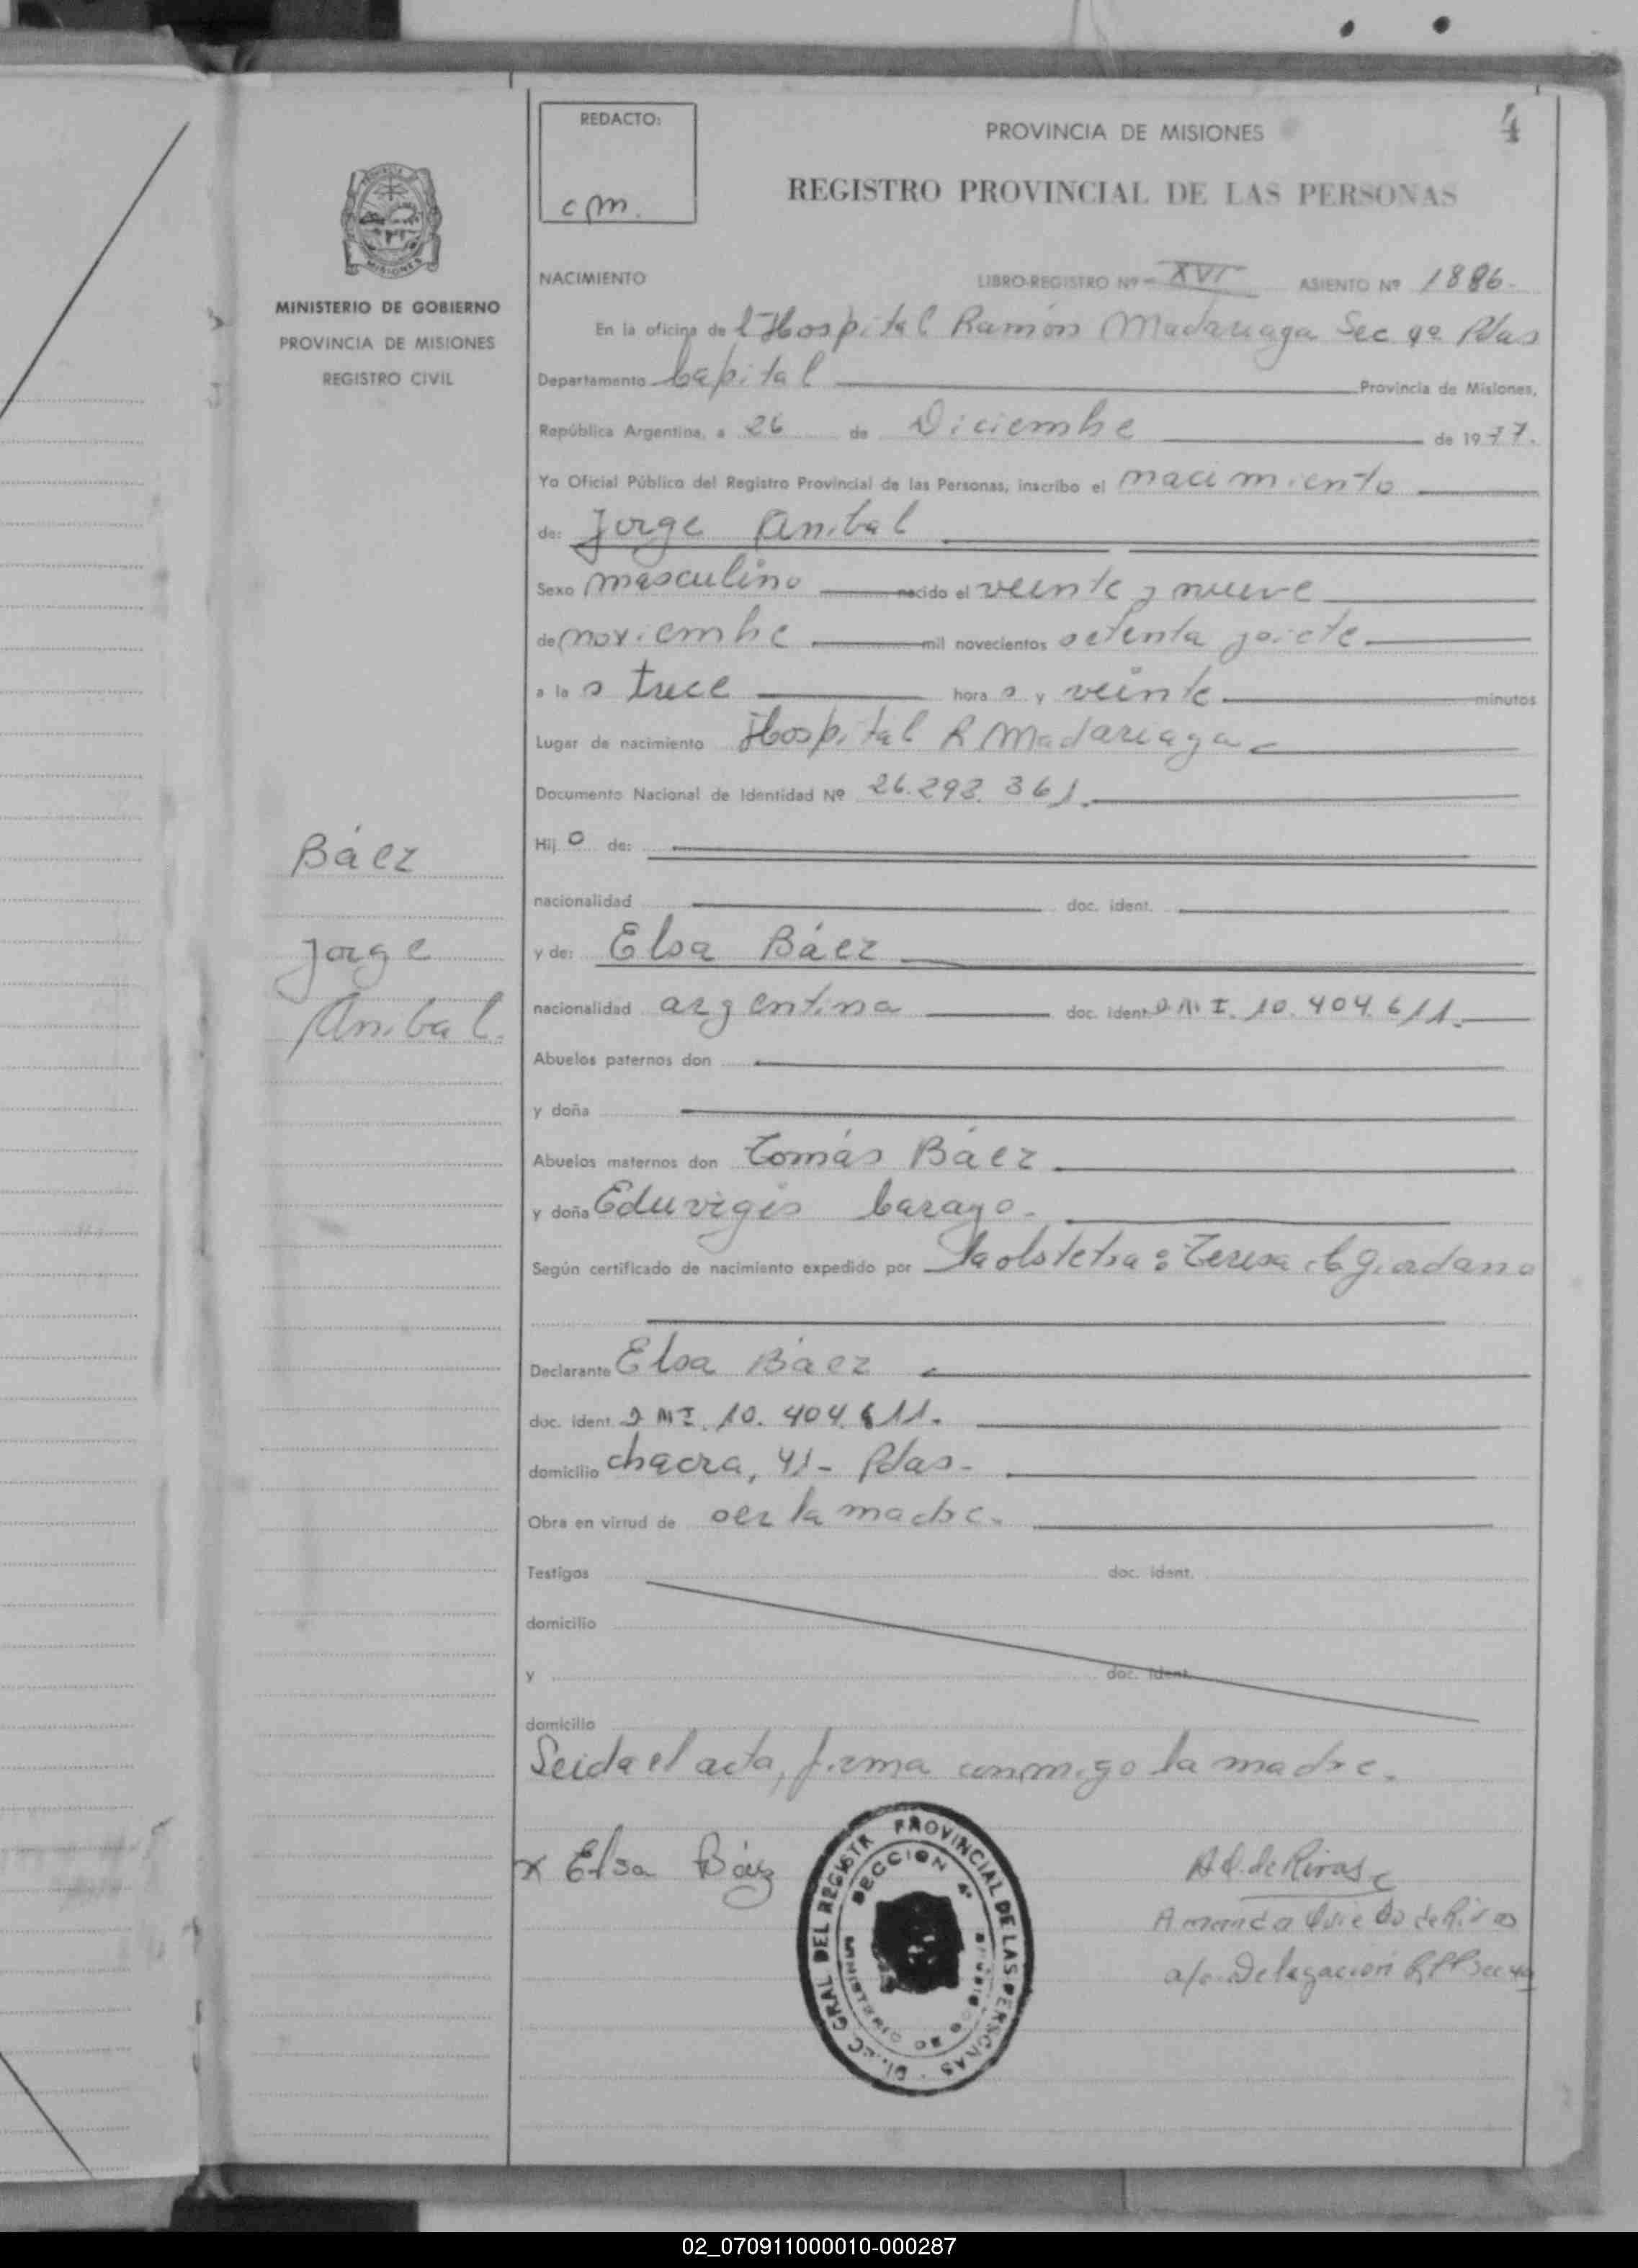 REDACTO:
cm.
PROVINCIA DE MISIONES
4
REGISTRO PROVINCIAL DE LAS PERSONAS
MINISTERIO DE GOBIERNO
PROVINCIA DE MISIONES
REGISTRO CIVIL
Báez
Jorge
Anibal.
NACIMIENTO LIBRO-REGISTRO Nº XVI ASIENTO Nº 1886.
En la oficina de l Hospital Ramón Madariaga Sec 4ª Pdas
Departamento Capital Provincia de Misiones,
República Argentina, a 26 de Diciembre de 1977.
Yo Oficial Público del Registro Provincial de las Personas, inscribo el nacimiento
de: Jorge Anibal
Sexo masculino nacido el veinte y nueve
de noviembre mil novecientos setenta y siete.
a la s trece hora s y veinte minutos
Lugar de nacimiento Hospital R Madariaga
Documento Nacional de Identidad Nº 26.292.361.
Hij o de:
nacionalidad doc. ident.
y de: Elsa Báez
nacionalidad argentina doc. ident. D.N.I. 10.404.611.
Abuelos paternos don
y doña
Abuelos maternos don Tomás Báez
y doña Eduvigis
Según certificado de nacimiento expedido por la obstetra: Teresa
Declarante Elsa Báez
doc. ident. D.N.I. 10.404.611.
domicilio chacra, 41- Pdas-
Obra en virtud de ser la madre.
Testigos doc. ident.
domicilio
y doc. ident.
domicilio
Leida el acta, firma conmigo la madre.
x Elsa Báez
DIREC. GRAL DEL REGISTR PROVINCIAL DE LAS PERSONAS
SECCION 4ª
MINISTERIO DE
A O. de Rivas
Amanda Oviedo de Rivas
a/c. Delegación RPP Sec 4ª
02_070911000010-000287